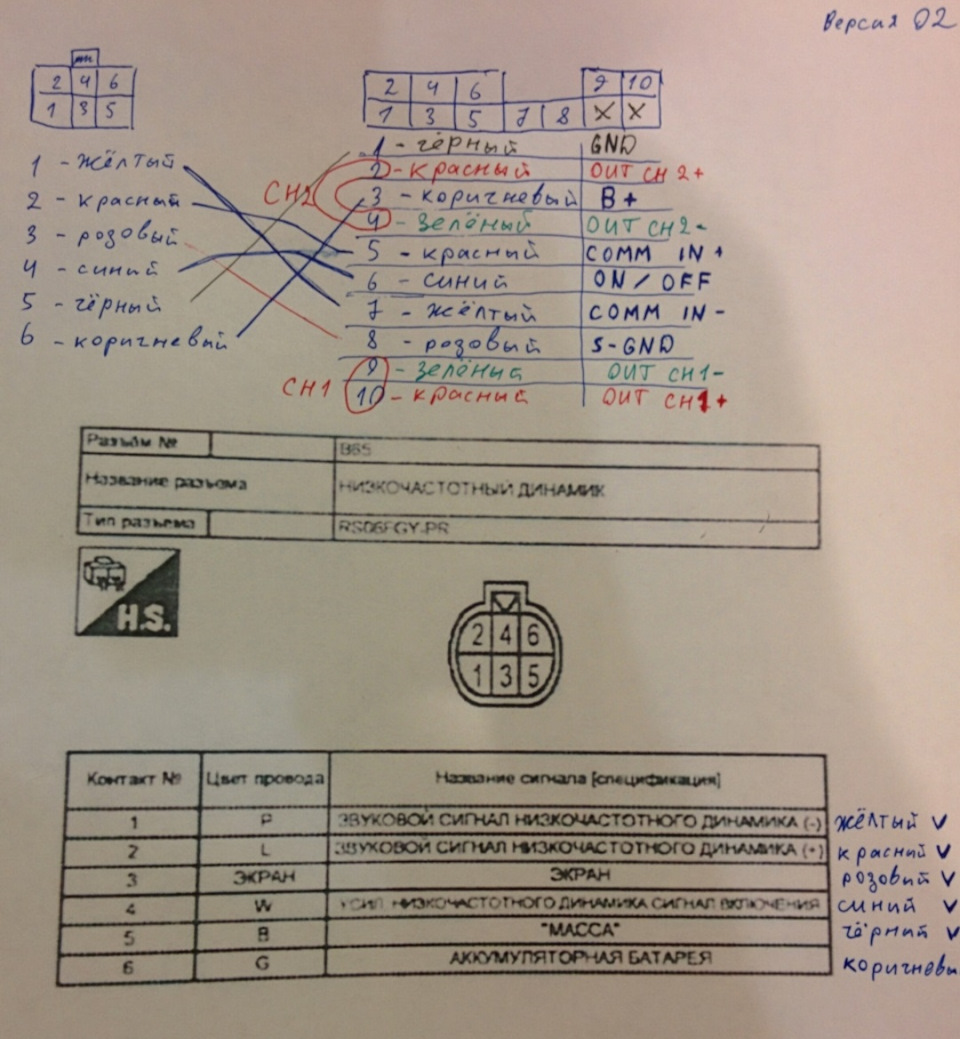 Версия 02
2 4 6
1 3 5
2 4 6 9 10
1 3 5 7 8 X X
1 - жёлтый
2 - красный
3 - розовый
4 - синий
5 - чёрный
6 - коричневый
CH2
CH1
1 - чёрный GND
2 - красный OUT CH 2+
3 - коричневый B+
4 - зелёный OUT CH2-
5 - красный COMM IN +
6 - синий ON / OFF
7 - жёлтый COMM IN -
8 - розовый S-GND
9 - зелёный OUT CH1-
10 - красный OUT CH1+
Разъём № B65
Название разъема НИЗКОЧАСТОТНЫЙ ДИНАМИК
Тип разъема RS06FGY-PR
H.S.
2 4 6
1 3 5
Контакт № Цвет провода Название сигнала [спецификация]
1 P ЗВУКОВОЙ СИГНАЛ НИЗКОЧАСТОТНОГО ДИНАМИКА (-) жёлтый V
2 L ЗВУКОВОЙ СИГНАЛ НИЗКОЧАСТОТНОГО ДИНАМИКА (+) красный V
3 ЭКРАН ЭКРАН розовый V
4 W УСИЛ. НИЗКОЧАСТОТНОГО ДИНАМИКА СИГНАЛ ВКЛЮЧЕНИЯ синий V
5 B "МАССА" чёрний V
6 G АККУМУЛЯТОРНАЯ БАТАРЕЯ коричневы